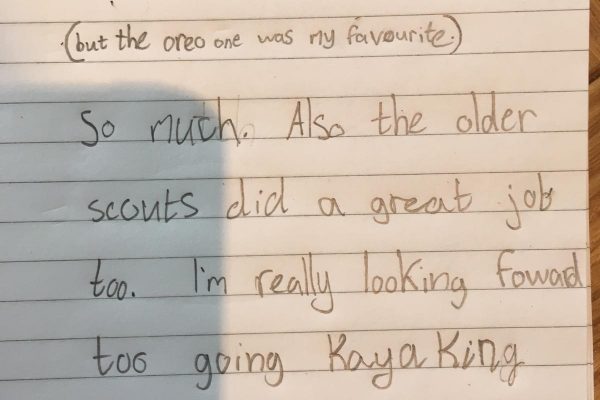 (but the oreo one was my favourite.)
So much. Also the older
scouts did a great job
too. I'm really looking foward
too going Kayaking